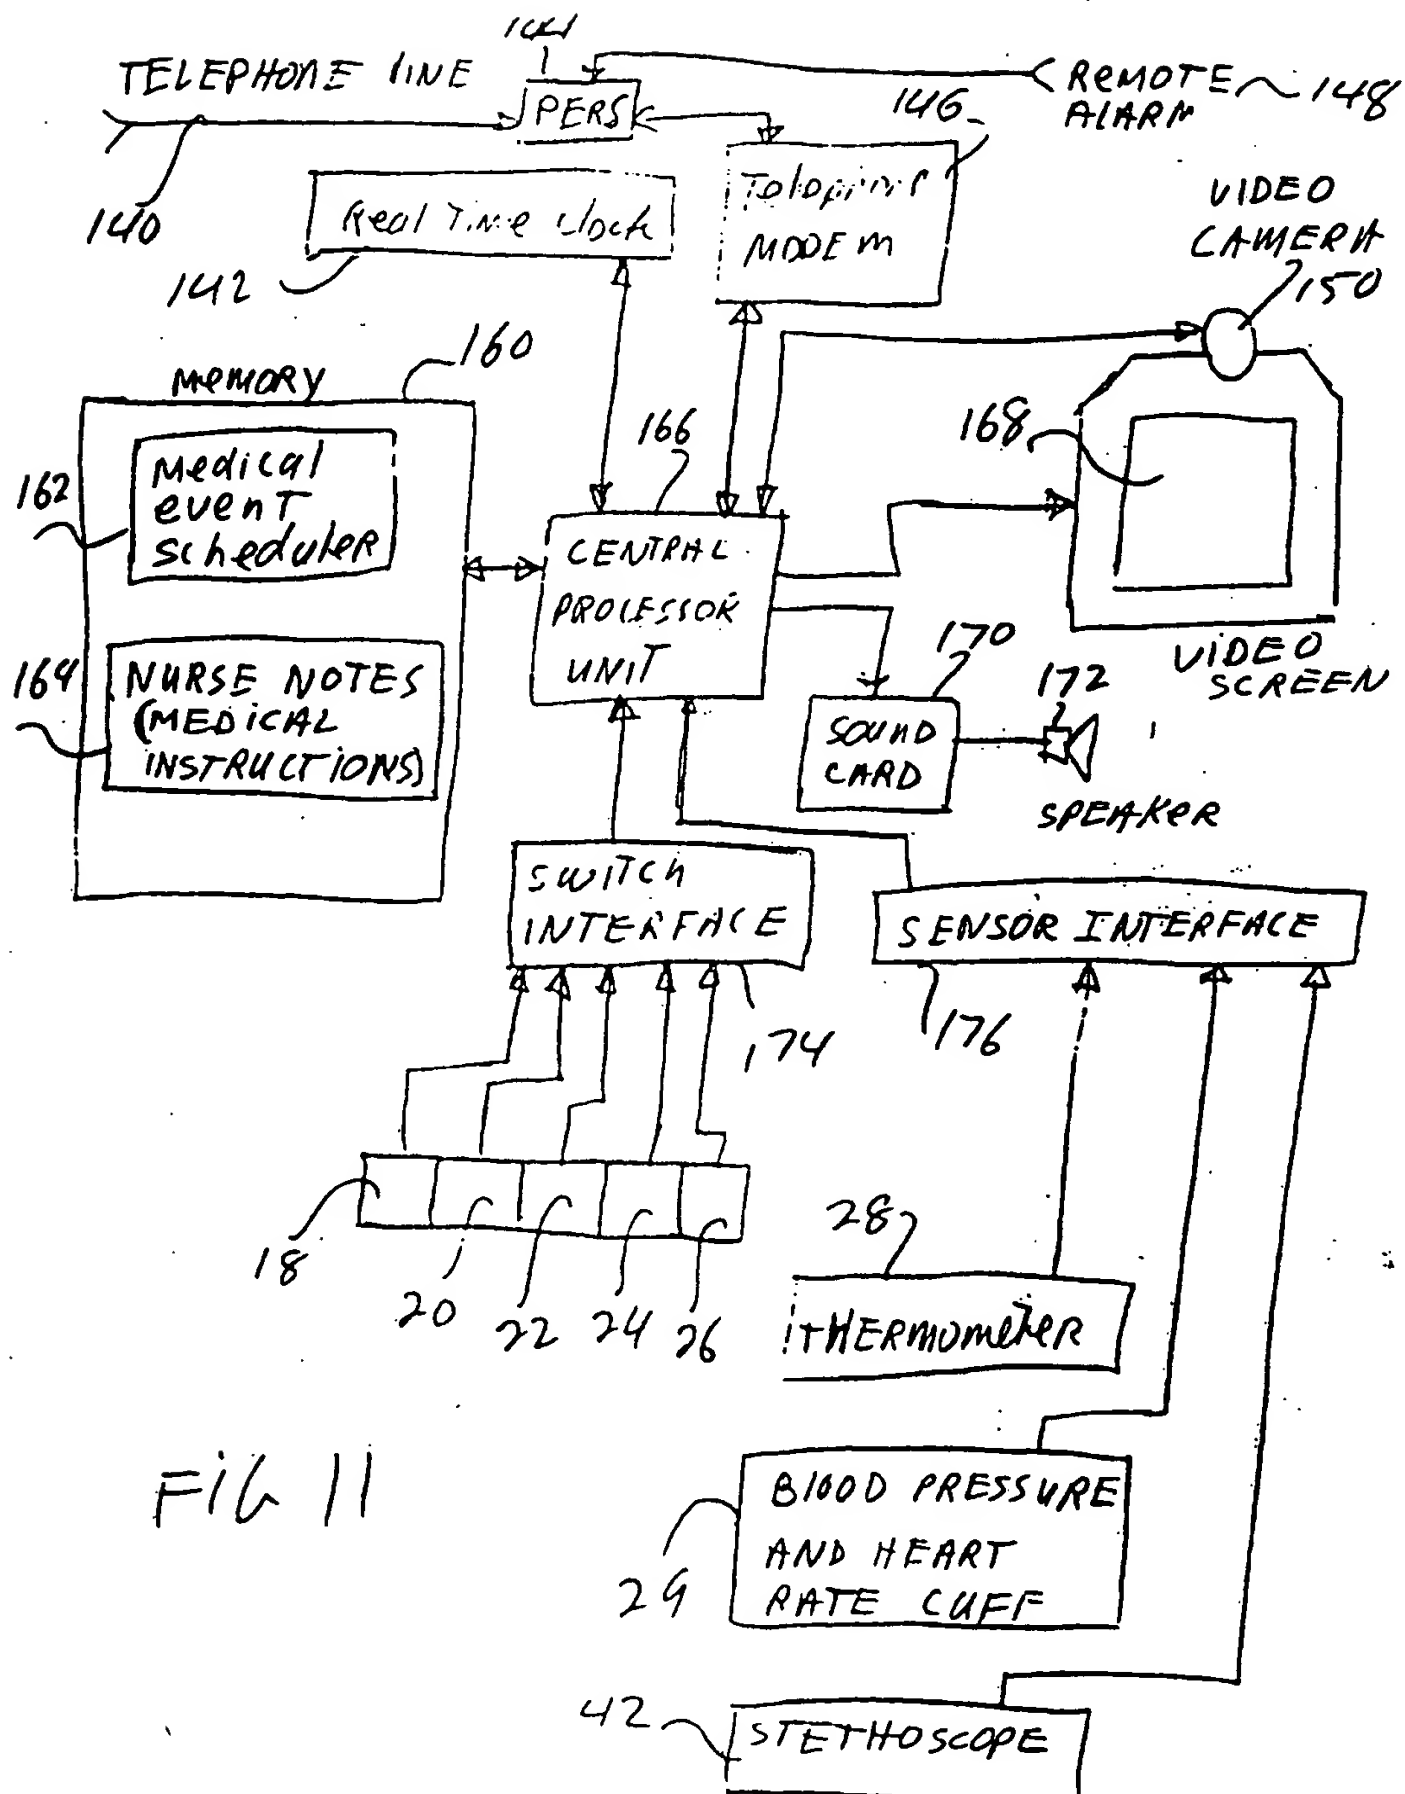 144
TELEPHONE LINE
PERS
REMOTE
ALARM
148
146
140
Real Time Clock
142
MODEM
VIDEO
CAMERA
150
160
MEMORY
162
Medical
event
scheduler
164
NURSE NOTES
(MEDICAL
INSTRUCTIONS)
166
CENTRAL
PROCESSOR
UNIT
168
VIDEO
SCREEN
170
SOUND
CARD
172
SPEAKER
SWITCH
INTERFACE
174
SENSOR INTERFACE
176
18
20
22
24
26
28
THERMOMETER
FIG 11
29
BLOOD PRESSURE
AND HEART
RATE CUFF
42
STETHOSCOPE